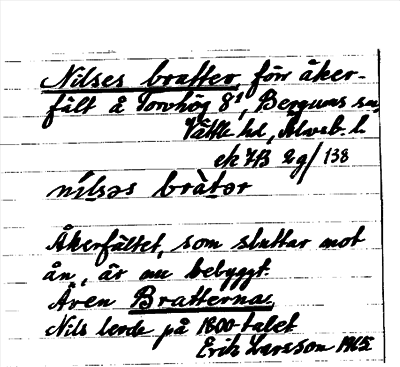 Nilses bratter, förr åker-
fält å Torvhög 8¹, Bergums sn,
Vättle hd, Älvsb. l.
ek 7B 2g/138
nílsəs bràtər
Åkerfältet, som sluttar mot
ån, är nu bebyggt.
Även Bratterna.
Nils levde på 1800-talet
Erik Larsson 1965